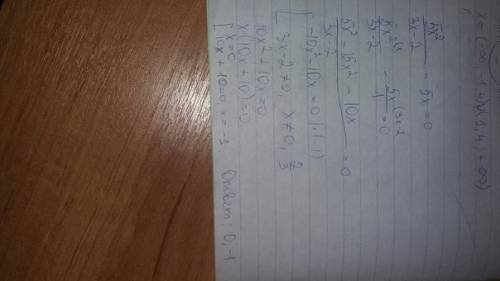 5x²/(3x-2) - 5x = 0
5x²/(3x-2) - 5x(3x-2)/1 = 0
(5x² - 15x² - 10x)/(3x-2) = 0
[-10x² - 10x = 0 | : (-1)
3x-2 ≠ 0, x ≠ 0, 2/3
10x² + 10x = 0
x(10x + 10) = 0
[x = 0
10x + 10 = 0 x = -1
Ответ 0, -1